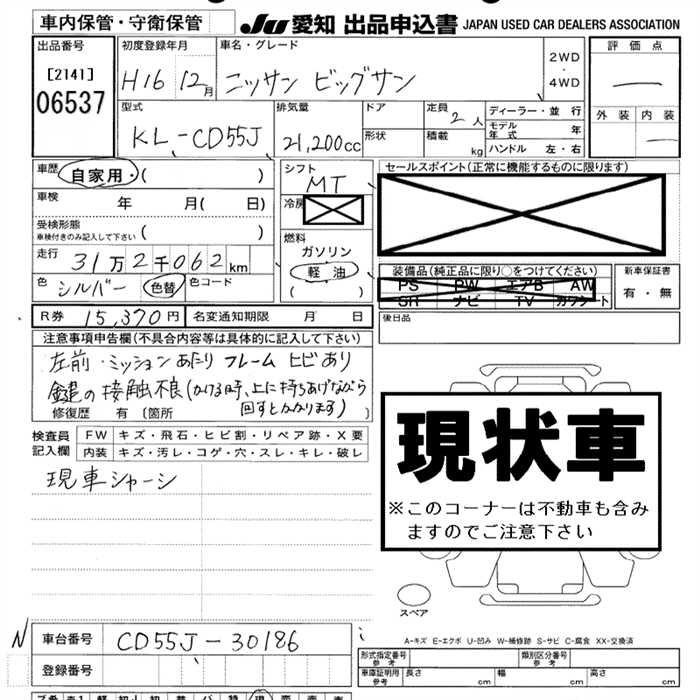 車内保管・守衛保管 JU 愛知 出品申込書 JAPAN USED CAR DEALERS ASSOCIATION
出品番号 初度登録年月 車名・グレード 評価点
[2141] 06537 H16 12月 ニッサン ビッグサン 2WD・4WD —
型式 排気量 ドア 定員 2人 ディーラー・並行 外装 内装
KL-CD55J 21,200cc 形状 積載 kg モデル年式 年 —
ハンドル 左・右
車歴 自家用・( ) シフト MT セールスポイント(正常に機能するものに限ります)
車検 年 月( 日) 冷房
受検形態 車検付きのみ記入して下さい ( ) 燃料 ガソリン
走行 31万2千062km 軽油 装備品(純正品に限り○をつけてください) 新車保証書
色 シルバー 色替 色コード ( ) PS PW エアB AW 有・無
SR ナビ TV カワシート
R券 15,370円 名変通知期限 月 日 後日品
注意事項申告欄(不具合内容等は具体的に記入して下さい)
左前・ミッションあたり フレーム ヒビあり
鍵の接触不良(かける時、上に持ちあげながら
回すとかかります)
修復歴 有(箇所 )
検査員記入欄 FW キズ・飛石・ヒビ割・リペア跡・X要
内装 キズ・汚レ・コゲ・穴・スレ・キレ・破レ
現車シャーシ
現状車
※このコーナーは不動車も含み
ますのでご注意下さい
スペア
A-キズ E-エクボ U-凹み W-補修跡 S-サビ C-腐食 XX-交換済
N 車台番号 CD55J-30186
登録番号
型式指定番号 参考 類別区分番号 参考
車庫証明用 参考 長さ cm 幅 cm 高さ cm